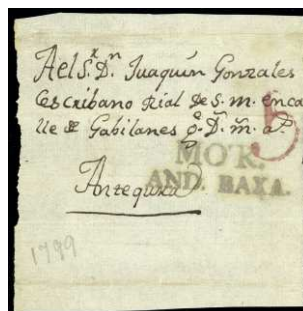 Ael S.r D.n Juaquin Gonzales
Escribano Rial de S. M. en ca
lle de Gabilanes g.e D.s m. a.s
5
MOR.
AND. BAXA.
Antequera
1799